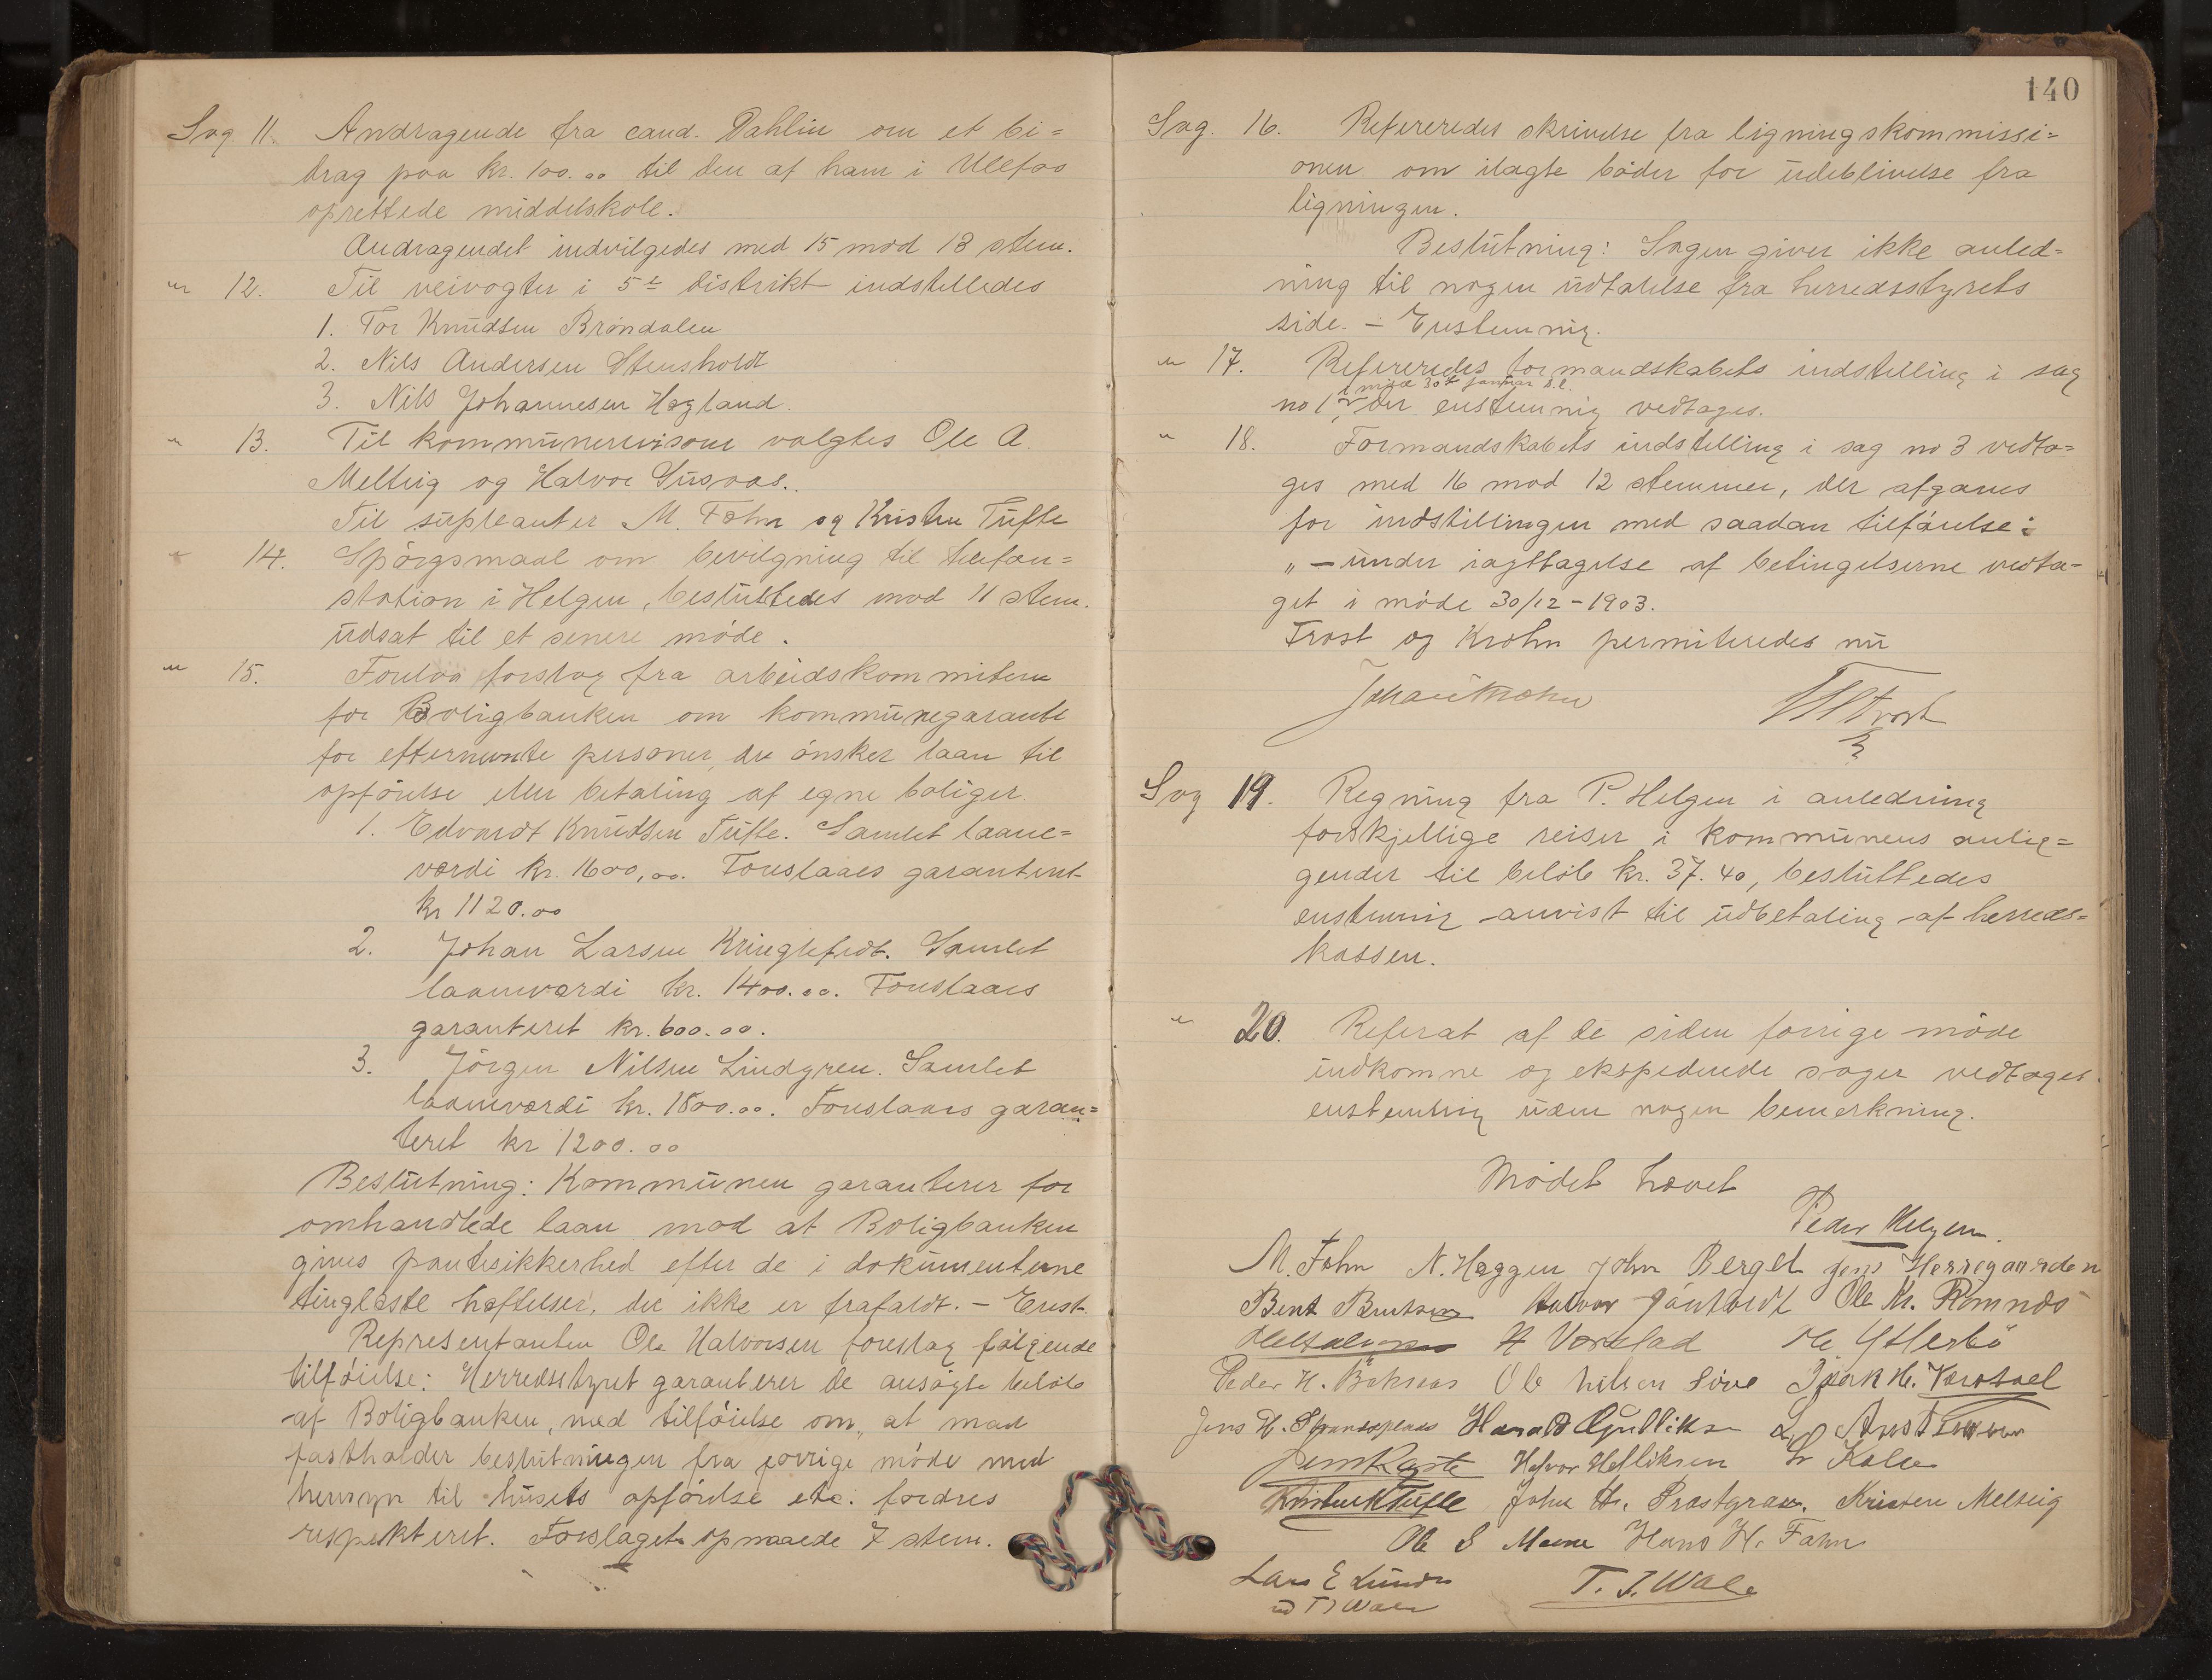 Sag 11. Andragende fra cand. Dahlin om et bi=
drag paa kr. 100.00 til den af ham i Ulefos
oprettede middelskole.
Andragendet indvilgedes med 15 mod 13 stem.
" 12. Til veivogter i 5te distrikt indstilledes
1. Tor Knudsen Bröndalen
2. Nils Andersen Stensholdt
3. Nils Johannesen Hogland.
" 13. Til kommunerevisorer valgtes Ole A.
Melteig og Halvor Susaas.
Til supleanter M. Fæhn og Kristen Tufte
" 14. Spörgsmaal om bevilgning til telefon=
station i Helgen, besluttedes mod 11 stem.
udsat til et senere möde.
" 15. Forelaa forslag fra arbeidskommiteen
for Boligbanken om kommunegaranti
for efternevnte personer, der önsker laan til
opförelse eller betaling af egne boliger.
1. Edvardt Knudsen Tufte. Samlet laane=
værdi kr. 1600,00. Foreslaaes garanteret
kr 1120.00
2. Johan Larsen Kringlefedt. Samlet
laaneværdi kr. 1400.00. Foreslaaes
garanteret kr. 600.00.
3. Jörgen Nilsen Lindgren. Samlet
laaneværdi kr. 1800.00. Foreslaaes garan=
teret kr 1200.00
Beslutning: Kommunen garanterer for
omhandlede laan mod at Boligbanken
gives pantesikkerhed efter de i dokumenterne
tinglæste heftelser, der ikke er frafaldt. – Enst.
Representanten Ole Halvorsen foreslog fölgende
tilföielse: Herredsstyret garanterer de ansögte belöb
af Boligbanken, med tilföielse om, at man
fastholder beslutningen fra forrige möde med
hensyn til husets opförelse etc. fordres
respekteret. Forslaget opnaaede 7 stem.
140
Sag. 16. Refereredes skrivelse fra ligningskommissi=
onen om ilagte böder for udeblivelse fra
ligningen.
Beslutning: Sagen giver ikke anled=
ning til nogen udtalelse fra herredsstyrets
side. – Enstemmig.
" 17. Refereredes formandskabets indstilling i sag
i möde 30te januar d.å.
no 1, der enstemmig vedtages.
" 18. Formandskabets indstilling i sag no 3 vedta=
ges med 16 mod 12 stemmer, der afgaves
for indstillingen med saadan tilföielse:
" – under iagttagelse af betingelserne vedta-
get i möde 30/12 – 1903.
Frost og Krohn permiteredes nu
Johan Krohn Frost
Sag 19. Regning fra P. Helgen i anledning
forskjellige reiser i kommunens anlig=
gender til belöb kr. 37.40, besluttedes
enstemmig anvist til udbetaling af herreds=
kassen.
" 20. Referat af de siden forrige möde
indkomne og ekspederede sager vedtages
enstemmig uden nogen bemerkning.
Mödet hævet
Peder Helgen.
M. Fæhn N. Hæggen John Berget Jens Herregaarden
Bent Bentsen Halvor Ole Kr. Romnes
H Vorstad Ole Ytterbö
Peder H. Ole Nilsen Söve Isak H.
Jens H. Harald Gulliksen
Halvor Hefliksen Kole
Kristen K Tufte John Hr. Præstgrav. Kristen Melteig
Ole S Moene Hans H. Fæhn
Lars E Lunde
v T J Wale T. J. Wale